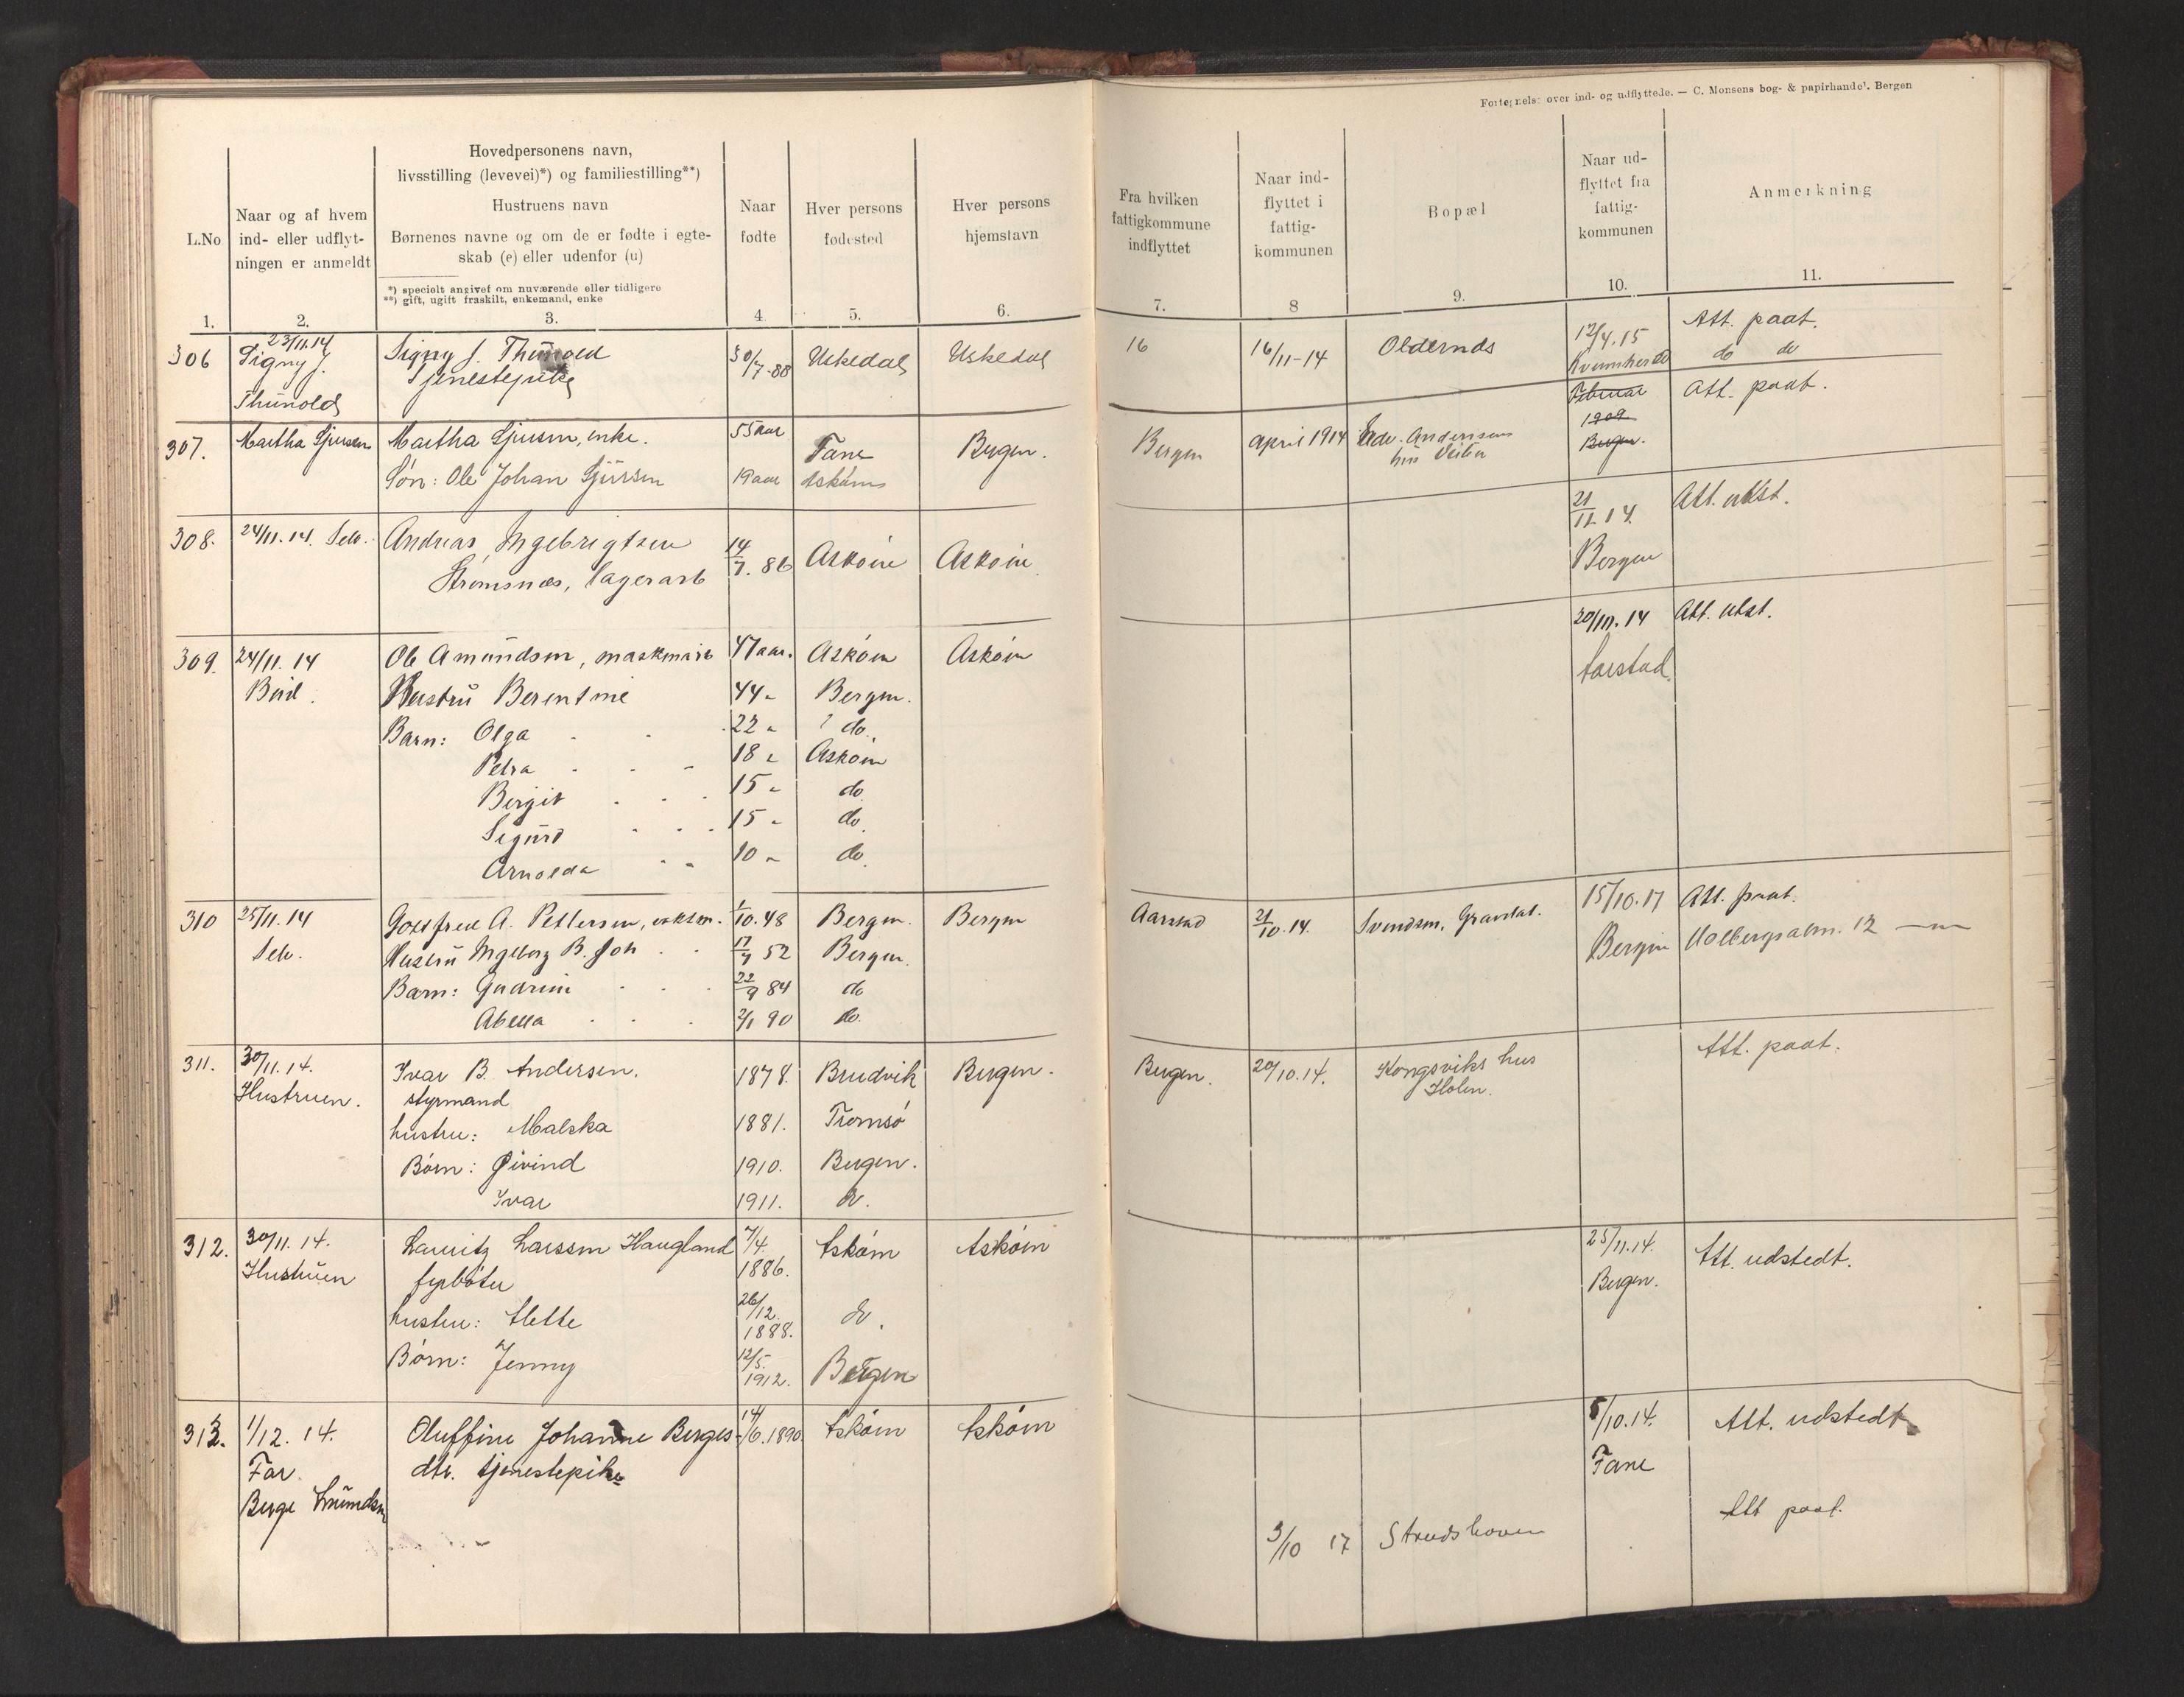 Fortegnelse over ind- og udflyttede. — C. Monsens bog- & papirhandel. Bergen
L.No
Naar og af hvem
ind- eller udflyt-
ningen er anmeldt
Hovedpersonens navn,
livsstilling (levevei)*) og familiestilling**)
Hustruens navn
Børnenes navne og om de er fødte i egte-
skab (e) eller udenfor (u)
*) specielt angivet om nuværende eller tidligere
**) gift, ugift fraskilt, enkemand, enke
Naar
fødte
Hver persons
fødested
Hver persons
hjemstavn
Fra hvilken
fattigkommune
indflyttet
Naar ind-
flyttet i
fattig-
kommunen
Bopæl
Naar ud-
flyttet fra
fattig-
kommunen
Anmerkning
1. 2. 3. 4 5. 6. 7. 8 9. 10. 11.
306 23/11.14 Signy J. Thunold
Signy J. Thunold
Tjenestepike
30/7-88 Uskedal Uskedal
16 16/11-14 Oldernes 12/4.15
Kvinnherad
Att. paat.
do do
307. Martha Sjursen Martha Sjursen, enke. 55 aar Fane Bergen.
Søn: Ole Johan Sjursen 19 aar Askøen
Bergen april 1914 Andersens
hus
Februar
1909
Bergen.
Att. paat.
308. 24/11.14. Selv. Andreas Ingebrigtsen
Strømsnæs, lagerarb
14/7. 86 Askøen Askøen
21/11.14
Bergen
Att. utst.
309. 24/11.14
Bud.
Ole Amundsen, maskinarb 47 aar. Askøen Askøen
Hustru Berentine 44 " Bergen.
Barn: Olga 22 " ? do.
Petra 18 " Askøen
Bergit 15 " do
Sigurd 15 " do.
Arnolda 10 " do.
20/11.14
Aarstad.
Att. utst.
310 25/11.14
Selv.
Gottfred A. Pettersen, 1/10.48 Bergen. Bergen
Hustru Ingeborg B. 17/7 52 Bergen.
Barn: Gudrun 22/9 84 do
Abella 2/1 90 do.
Aarstad 21/10.14. Svendsen, Gravdal. 15/10.17
Bergen
Att. paat.
Holbergsalm. 12 —"—
311. 30/11.14.
Hustruen.
Ivar B. Andersen. 1878. Bruvik Bergen.
styrmand
hustru: Malska 1881. Tromsø
Børn: Øivind 1910. Bergen.
Ivar 1911. do.
Bergen. 20/10.14. Kongsviks hus
Holen.
Att. paat.
312. 30/11.14.
Hustruen
Lauritz Larssen Haugland 7/4.
1886. Askøen Askøen
fyrbøter
hustru: Mette 26/12.
1888. do.
Børn: Jenny 12/5.
1912. Bergen
25/11.14.
Bergen.
Att. udstedt.
313. 1/12. 14.
Far
Berge
Oluffine Johanne Berges-
dtr. tjenestepike
14/6.1890 Askøen Askøen
5/10.14.
Fane
Att. udstedt
3/10 17 Strudshavn
Att paat.